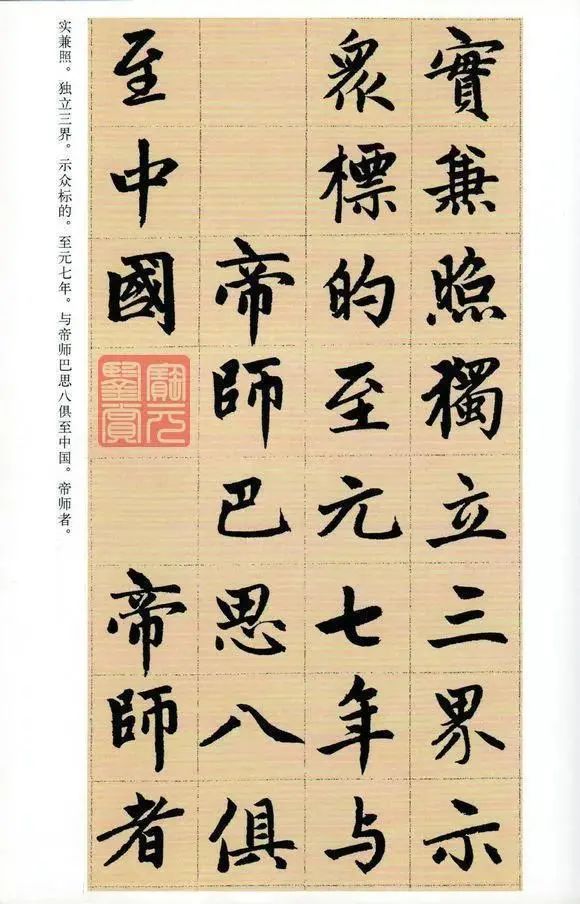 實兼照獨立三界示
衆標的至元七年与
帝師巴思八俱
至中國
帝師者
实兼照。独立三界。示众标的。至元七年。与帝师巴思八俱至中国。帝师者。
寶元
鑒賞